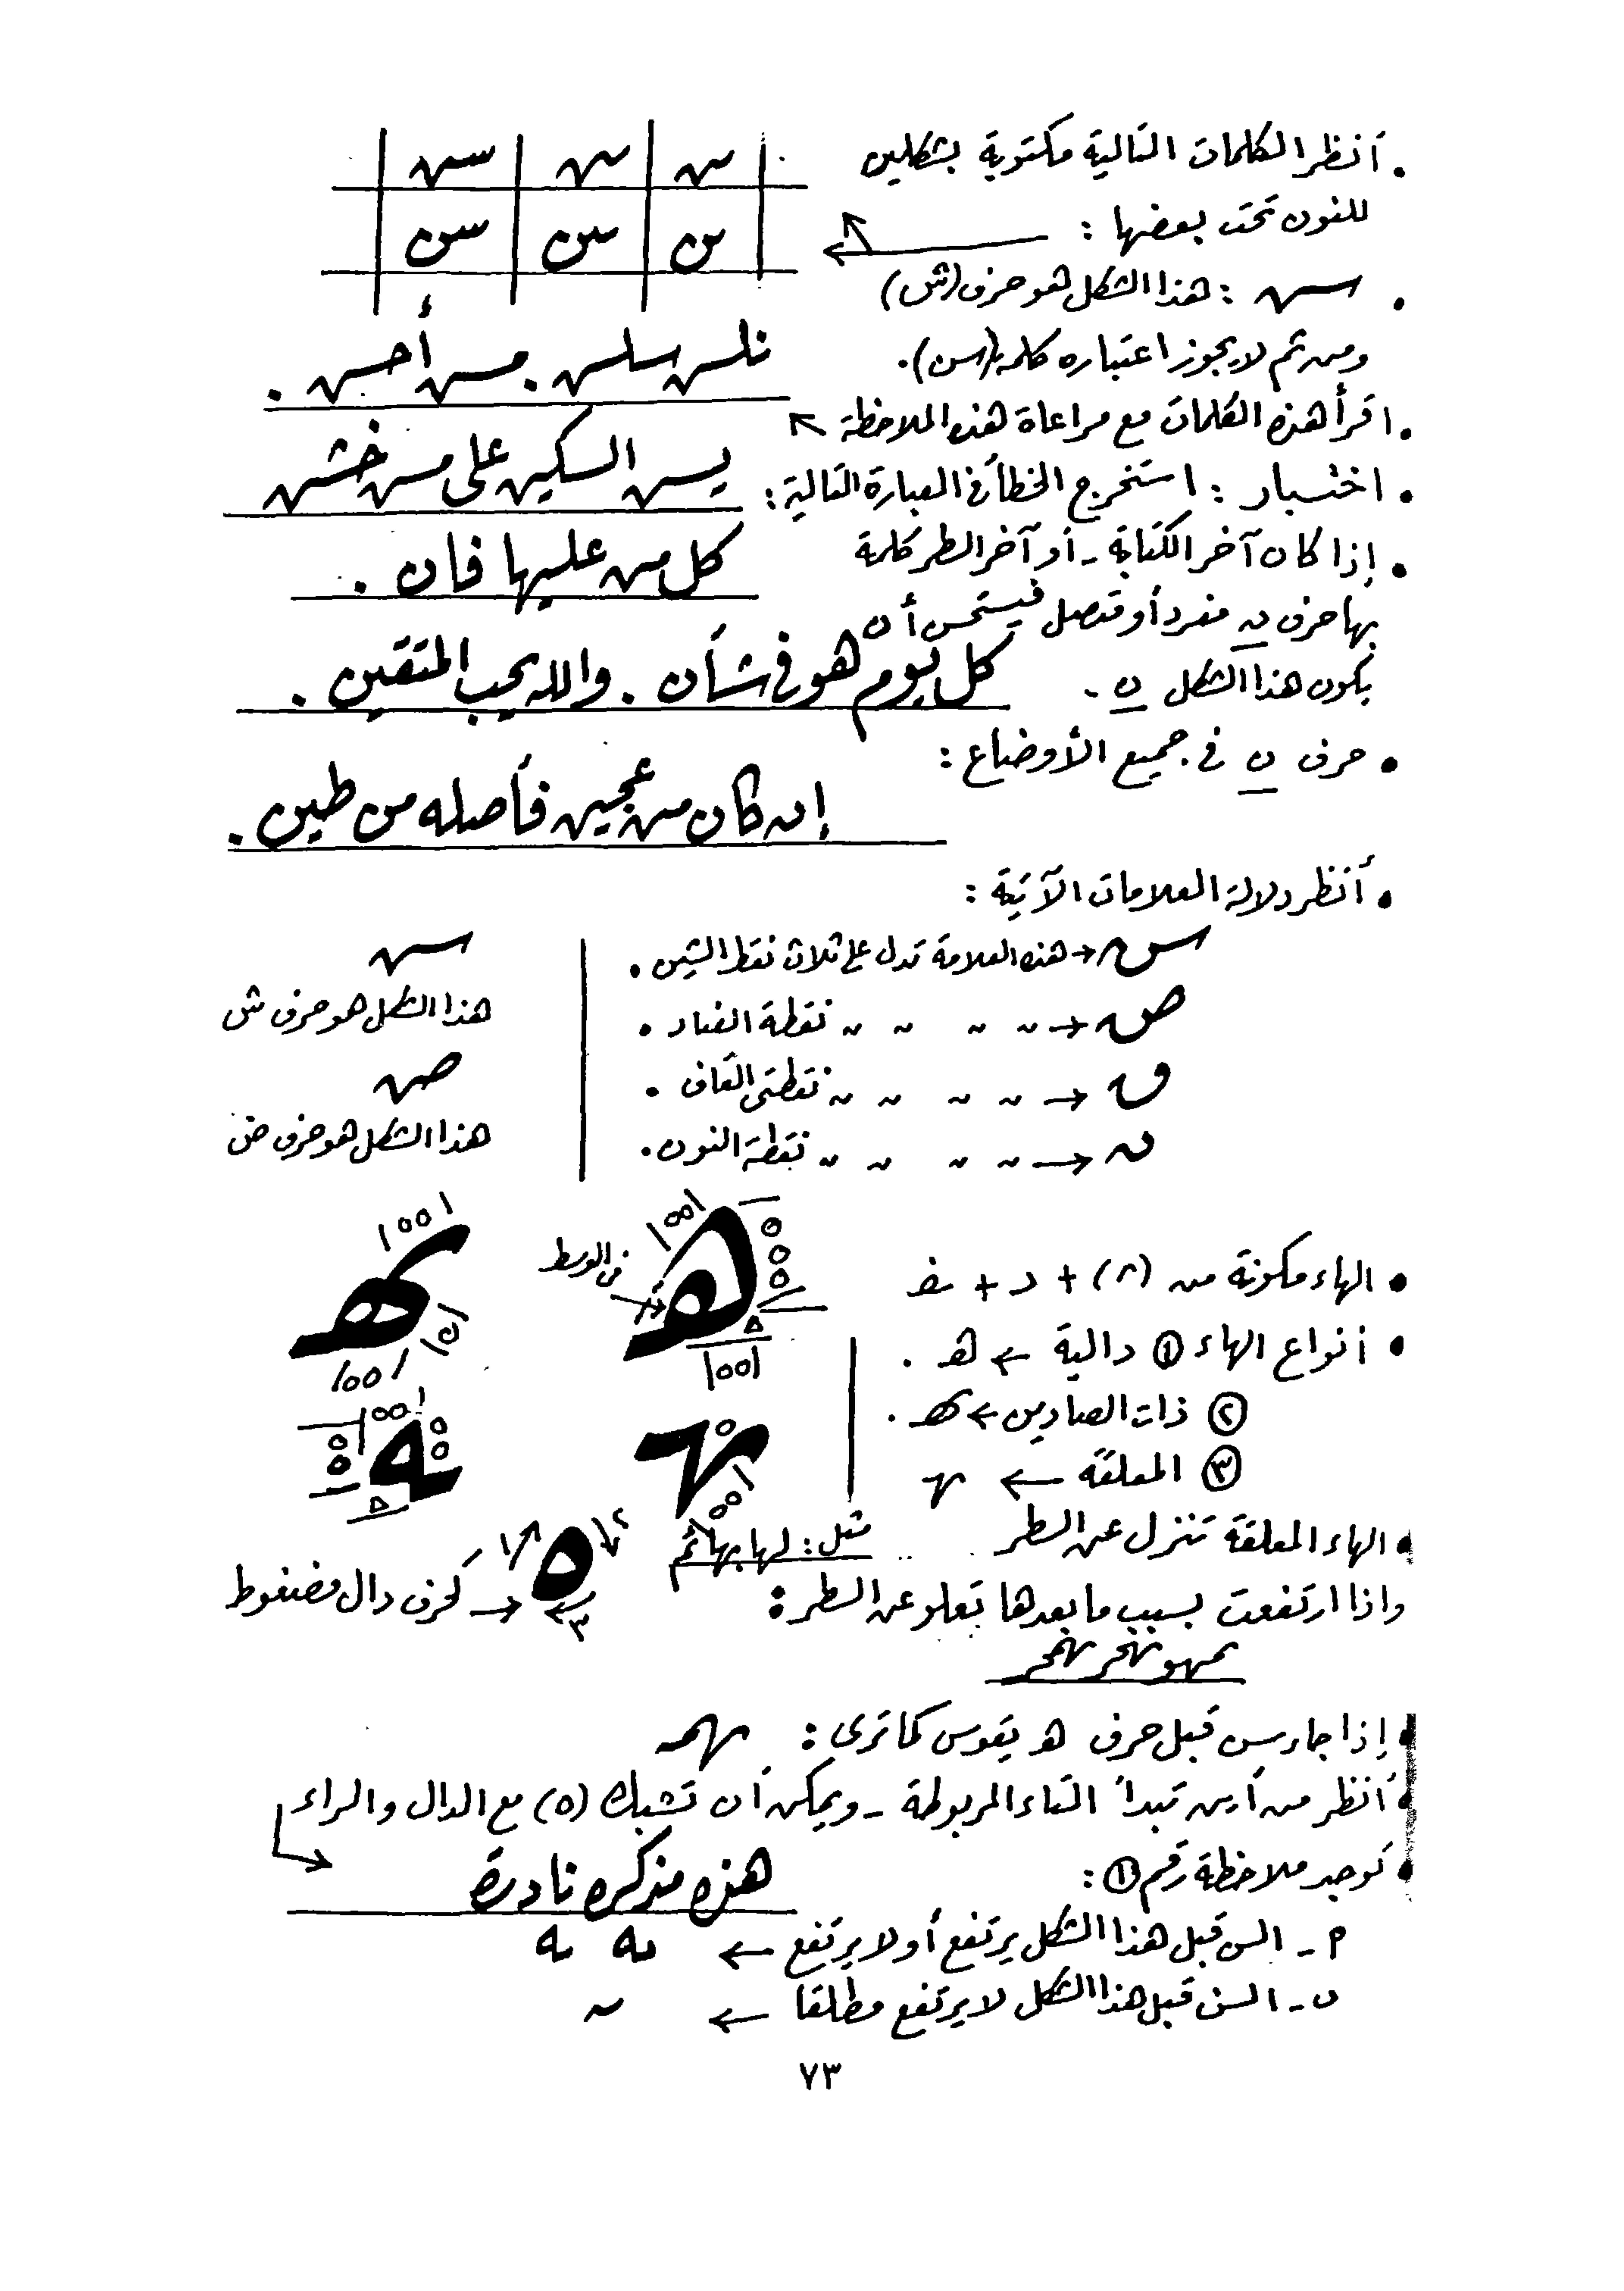 . أنظر الكلمات التالية مكتوبة بشكلين
للنون تحت بعضها :
. هذا الشكل هو حرف (ش)
ومن ثم لا يجوز اعتباره كلمة (سن).
. اقرأ هذه الكلمات مع مراعاة هذه الملاحظة
. اختبار : استخرج الخطأ في العبارة التالية :
يسن السكين على مسن خشن
. إذا كان آخر الكتابة - أو آخر السطر كلمة
كل من عليها فان .
بها حرف ن مفرد أو متصل فيستحسن أن
يكون هذا الشكل ن .
كل يوم هو في شأن . والله يحب المتقين .
. حرف ن في جميع الأوضاع :
إن كان من عجين فأصله من طين .
. أنظر دلالة العلامات الآتية :
س → هذه العلامة تدل على ثلاث نقط الشين .
ص → " " " " نقطة الضاد .
ق → " " " " نقطتى القاف .
ن → " " " " نقطة النون .
هذا الشكل هو حرف ش
هذا الشكل هو حرف ض
. الهاء مكونة من
في الوسط
. أنواع الهاء ① دالية ← هـ .
② ذات الصادين ← هـ .
③ المعلقة ← ـهـ
. الهاء المعلقة تنزل عن السطر
مثل : لها بهائم
وإذا ارتفعت بسبب ما بعدها تعلو عن السطر :
كحرف دال مضغوط
. إذا جاء سن قبل حرف هـ يقوس كما ترى :
. أنظر من أين تبدأ التاء المربوطة - ويمكن أن تشبك (ه) مع الدال والراء
. توجد ملاحظة رقم ① :
هذه مذكره نادرة
م - السن قبل هذا الشكل يرتفع أو لا يرتفع ←
ن - السن قبل هذا الشكل لا يرتفع مطلقا ←
٧٣